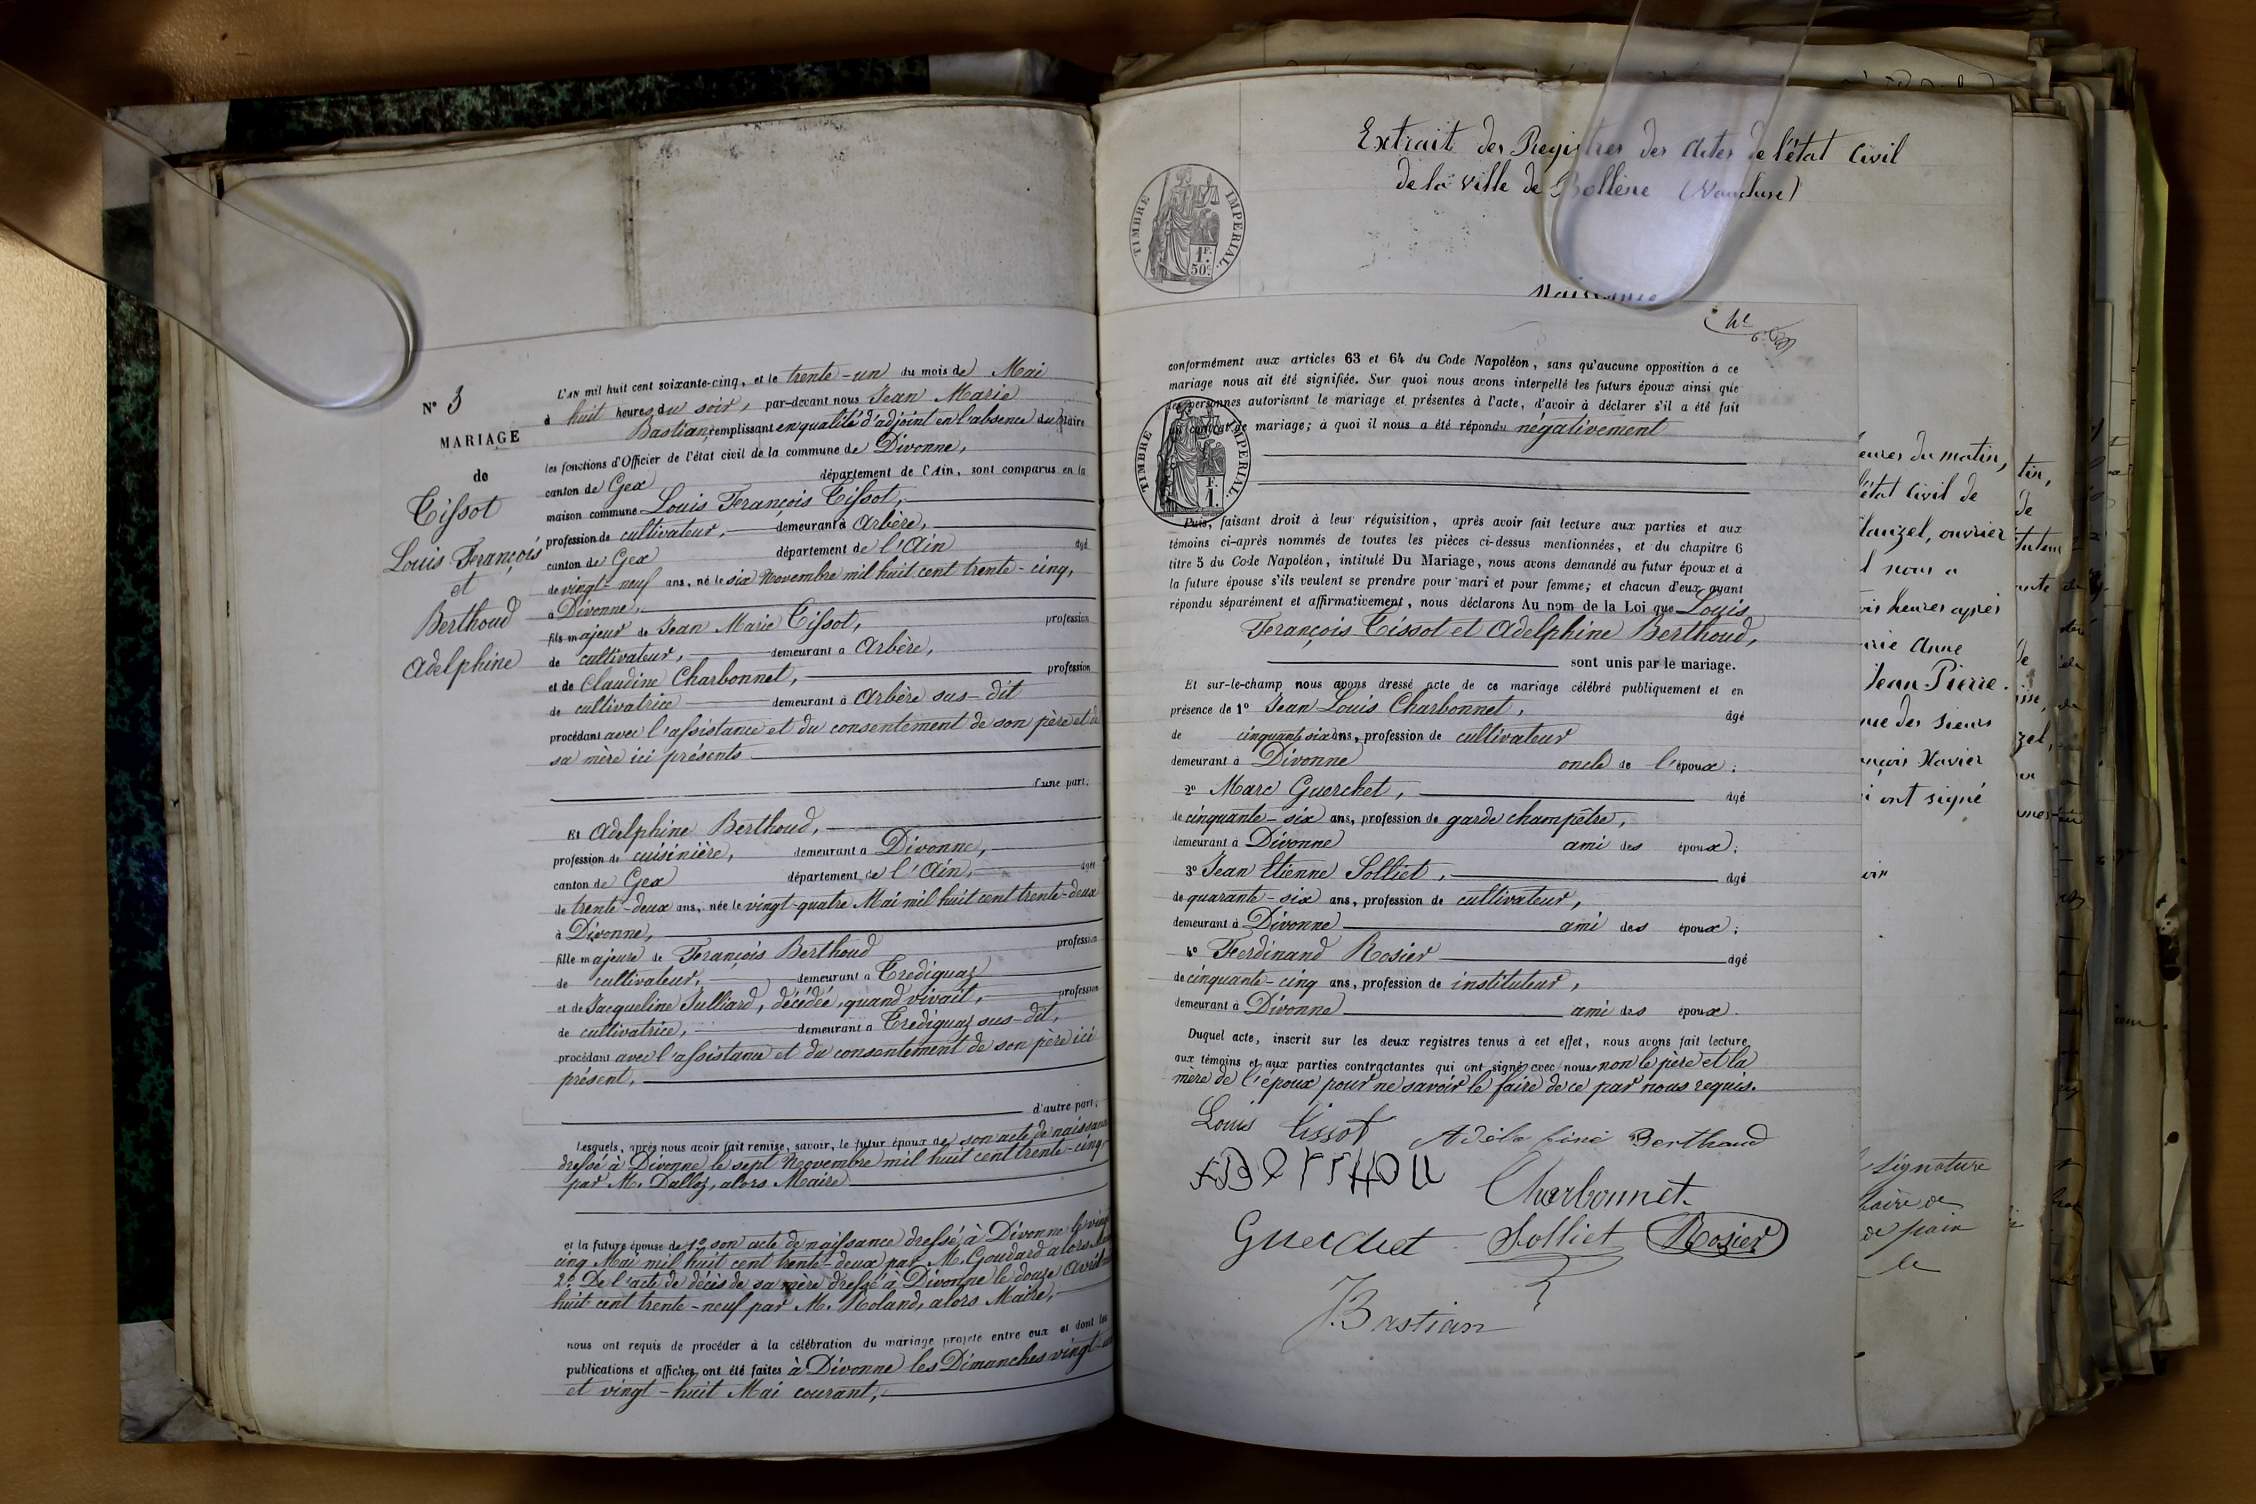 N° 3
MARIAGE
de
Tissot
Louis François
et
Berthoud
Adelphine
L'AN mil huit cent soixante-cinq, et le trente-un du mois de Mai
à huit heures du soir, par-devant nous Jean Marie
Bastian, remplissant en qualité d'adjoint en l'absence du Maire
les fonctions d'Officier de l'état civil de la commune de Divonne,
canton de Gex département de l'Ain, sont comparus en la
maison commune Louis François Tissot,
profession de cultivateur, demeurant à Arbère,
canton de Gex département de l'Ain âgé
de vingt-neuf ans, né le six Novembre mil huit cent trente-cinq,
à Divonne,
fils majeur de Jean Marie Tissot, profession
de cultivateur, demeurant à Arbère,
et de Claudine Charbonnet, profession
de cultivatrice demeurant à Arbère sus-dit
procédant avec l'assistance et du consentement de son père et de
sa mère ici présents
d'une part.
Et Adelphine Berthoud,
profession de cuisinière, demeurant à Divonne,
canton de Gex département de l'Ain, âgée
de trente-deux ans, née le vingt-quatre Mai mil huit cent trente-deux
à Divonne,
fille majeure de François Berthoud profession
de cultivateur, demeurant à Crediquaz
et de Jacqueline Julliard, décédée, quand vivait, profession
de cultivatrice, demeurant à Crediquaz sus-dit,
procédant avec l'assistance et du consentement de son père ici
présent,
d'autre part;
Lesquels, après nous avoir fait remise, savoir, le futur époux de son acte de naissance
dressé à Divonne le sept Novembre mil huit cent trente-cinq
par M. Dalloz, alors Maire
et la future épouse de 1° son acte de naissance dressé à Divonne le vingt
cinq Mai mil huit cent trente-deux par M. Goudard alors
2° De l'acte de décès de sa mère dressé à Divonne le douze Avril
huit cent trente-neuf par M. Roland, alors Maire,
nous ont requis de procéder à la célébration du mariage projeté entre eux et dont les
publications et affiches ont été faites à Divonne les Dimanches vingt-un
et vingt-huit Mai courant,
Extrait des Registres des Actes de l'état Civil
de la ville de Bollène (Vaucluse)
TIMBRE IMPERIAL.
1F. 50c.
Naissance
conformément aux articles 63 et 64 du Code Napoléon, sans qu'aucune opposition à ce
mariage nous ait été signifiée. Sur quoi nous avons interpellé les futurs époux ainsi que
les personnes autorisant le mariage et présentes à l'acte, d'avoir à déclarer s'il a été fait
un contrat de mariage; à quoi il nous a été répondu négativement
TIMBRE IMPERIAL.
F. 1.
Puis, faisant droit à leur réquisition, après avoir fait lecture aux parties et aux
témoins ci-après nommés de toutes les pièces ci-dessus mentionnées, et du chapitre 6
titre 5 du Code Napoléon, intitulé Du Mariage, nous avons demandé au futur époux et à
la future épouse s'ils veulent se prendre pour mari et pour femme; et chacun d'eux ayant
répondu séparément et affirmativement, nous déclarons Au nom de la Loi que Louis
François Tissot et Adelphine Berthoud,
sont unis par le mariage.
Et sur-le-champ nous avons dressé acte de ce mariage célébré publiquement et en
présence de 1° Jean Louis Charbonnet, âgé
de cinquante six ans, profession de cultivateur
demeurant à Divonne oncle de l'époux;
2° Marc Guerchet, âgé
de cinquante-six ans, profession de garde champêtre,
demeurant à Divonne ami des époux;
3° Jean Etienne Solliet, âgé
de quarante-six ans, profession de cultivateur,
demeurant à Divonne ami des époux;
4° Ferdinand Rosier âgé
de cinquante-cinq ans, profession de instituteur,
demeurant à Divonne ami des époux.
Duquel acte, inscrit sur les deux registres tenus à cet effet, nous avons fait lecture
aux témoins et aux parties contractantes qui ont signé avec nous non le père et la
mère de l'époux pour ne savoir le faire de ce par nous requis.
Louis Tissot Adélaфine Berthoud
Charbonnet
Guerchet Solliet Rosier
J. Bastian
heures du matin,
l'état Civil de
Clauzel, ouvrier
nous a
heures après
Anne
Jean Pierre.
des sieurs
Xavier
ont signé
signature